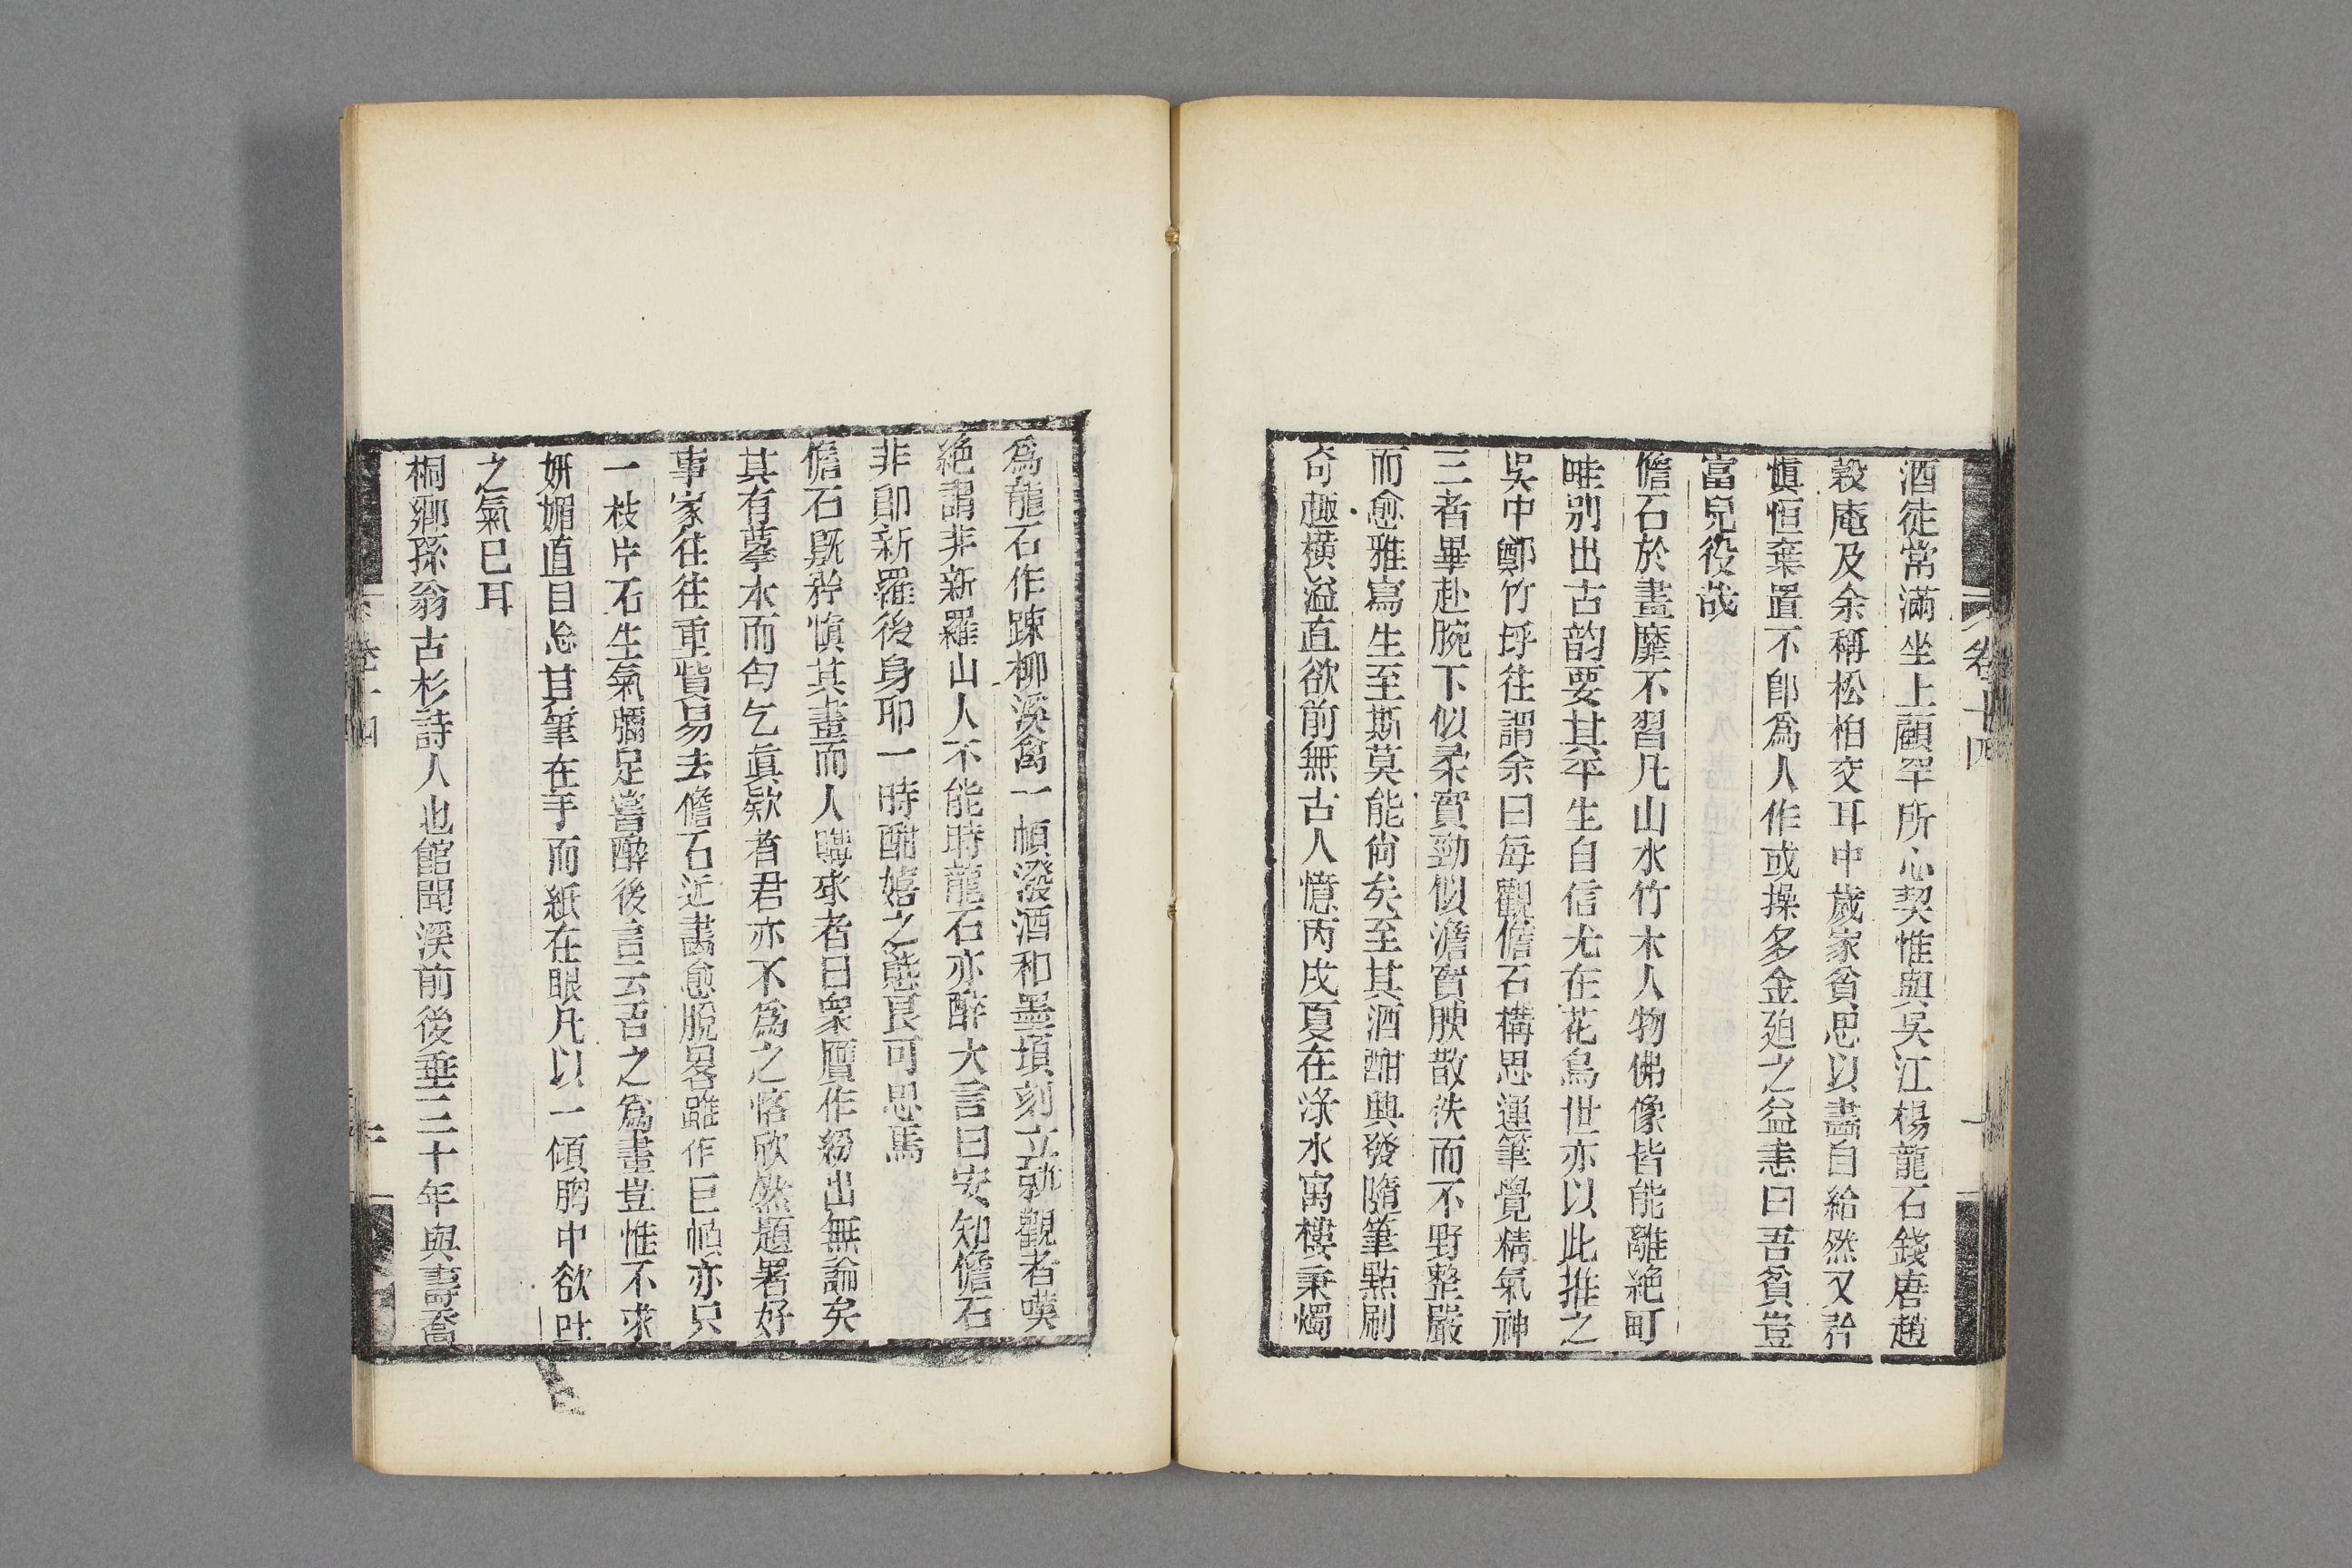 酒徒常滿坐上顧罕所心契惟與吳江楊龍石錢唐趙
穀庵及余稱松柏交耳中歲家貧思以畫自給然又矜
慎恒棄置不卽爲人作或操多金廹之益恚曰吾貧豈
富兒役哉
儋石於畫靡不習凡山水竹木人物佛像皆能離絶町
畦别出古韵要其平生自信尤在花鳥世亦以此推之
吳中鄭竹坪往謂余曰每觀儋石構思運筆覺精氣神
三者畢赴腕下似柔實勁似澹實腴散佚而不野整嚴
而愈雅寫生至斯莫能尙矣至其酒酣興發隨筆點刷
奇趣橫溢直欲前無古人憶丙戌夏在淥水寓樓秉燭
卷十四
爲龍石作踈柳溪禽一幀潑酒和墨頃刻立就觀者嘆
絶謂非新羅山人不能時龍石亦醉大言曰安知儋石
非卽新羅後身耶一時酣嬉之態良可思焉
儋石旣矜愼其畫而人購求者日衆贋作紛出無論矣
其有摹本而匄乞眞欵者君亦不爲之恡欣然題署好
事家往往重貲易去儋石近畫愈脫畧雖作巨幀亦只
一枝片石生氣彌足嘗醉後言云吾之爲畫豈惟不求
妍媚直自忘其筆在手而紙在眼凡以一傾胸中欲吐
之氣已耳
桐鄉孫翁古杉詩人也館聞溪前後垂二十年與壽喬
卷十四